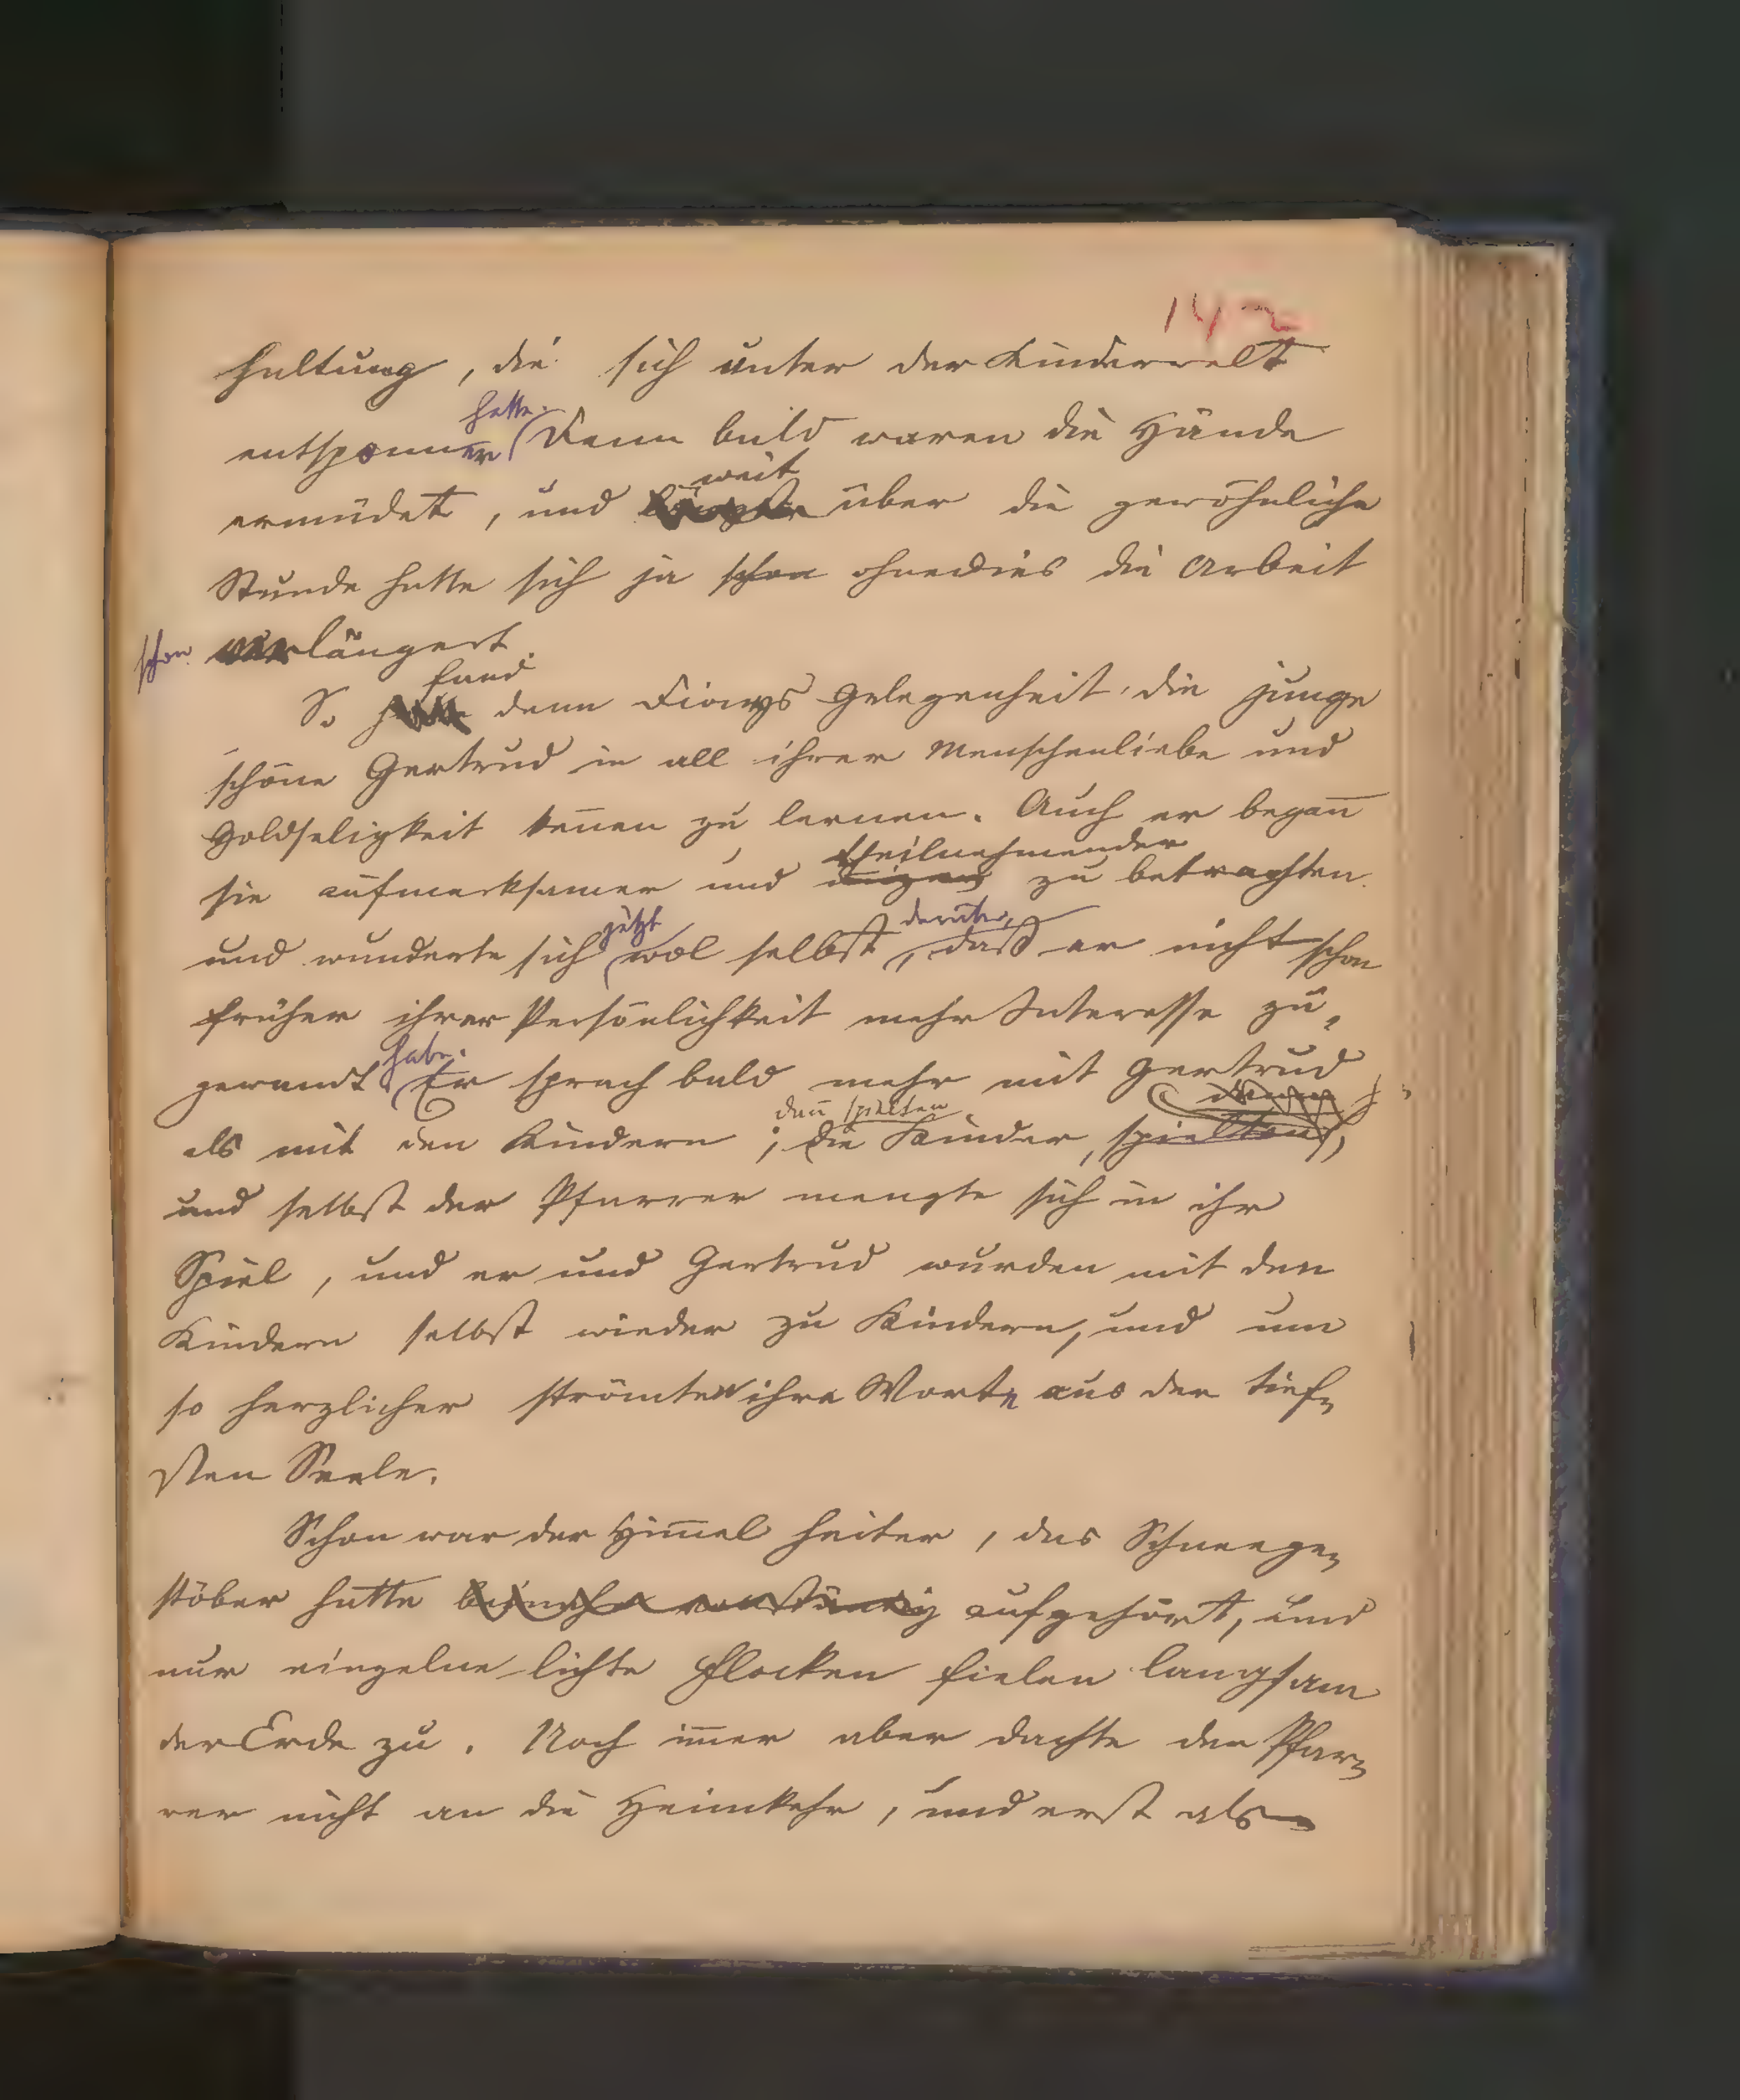 142
haltung, die sich unter der Kinderwelt
hatte.
entsponnen Denn bald waren die Hände
weit
ermüdet, und über die gewöhnliche
Stunde hatte sich ja schon ohnedies die Arbeit
schon verlängert.
fand
So denn Gelegenheit, die junge
schöne Gertrud in all ihrer Menschenliebe und
Holdseligkeit keñen zu lernen. Auch er begañ
theilnehmender
sie aufmerksamer und zu betrachten
jetzt darüber,
und wunderte sich wol selbst, daß er nicht schon
früher ihrer Persönlichkeit mehr Interesse zu-
habe.
gewandt Er sprach bald mehr mit Gertrud
dañ spielten
als mit den Kindern; die Kinder, spielten,
und selbst der Pfarrer mengte sich in ihr
Spiel, und er und Gertrud wurden mit den
Kindern selbst wieder zu Kindern, und um
so herzlicher strömten ihre Worte aus der tief-
sten Seele.
Schon war der Him̄el heiter, das Schneege-
stöber hatte beinahe vollständig aufgehört, und
nur einzelne lichte Flocken fielen langsam
der Erde zu. Noch im̄er aber dachte der Pfar-
rer nicht an die Heimkehr, und erst als